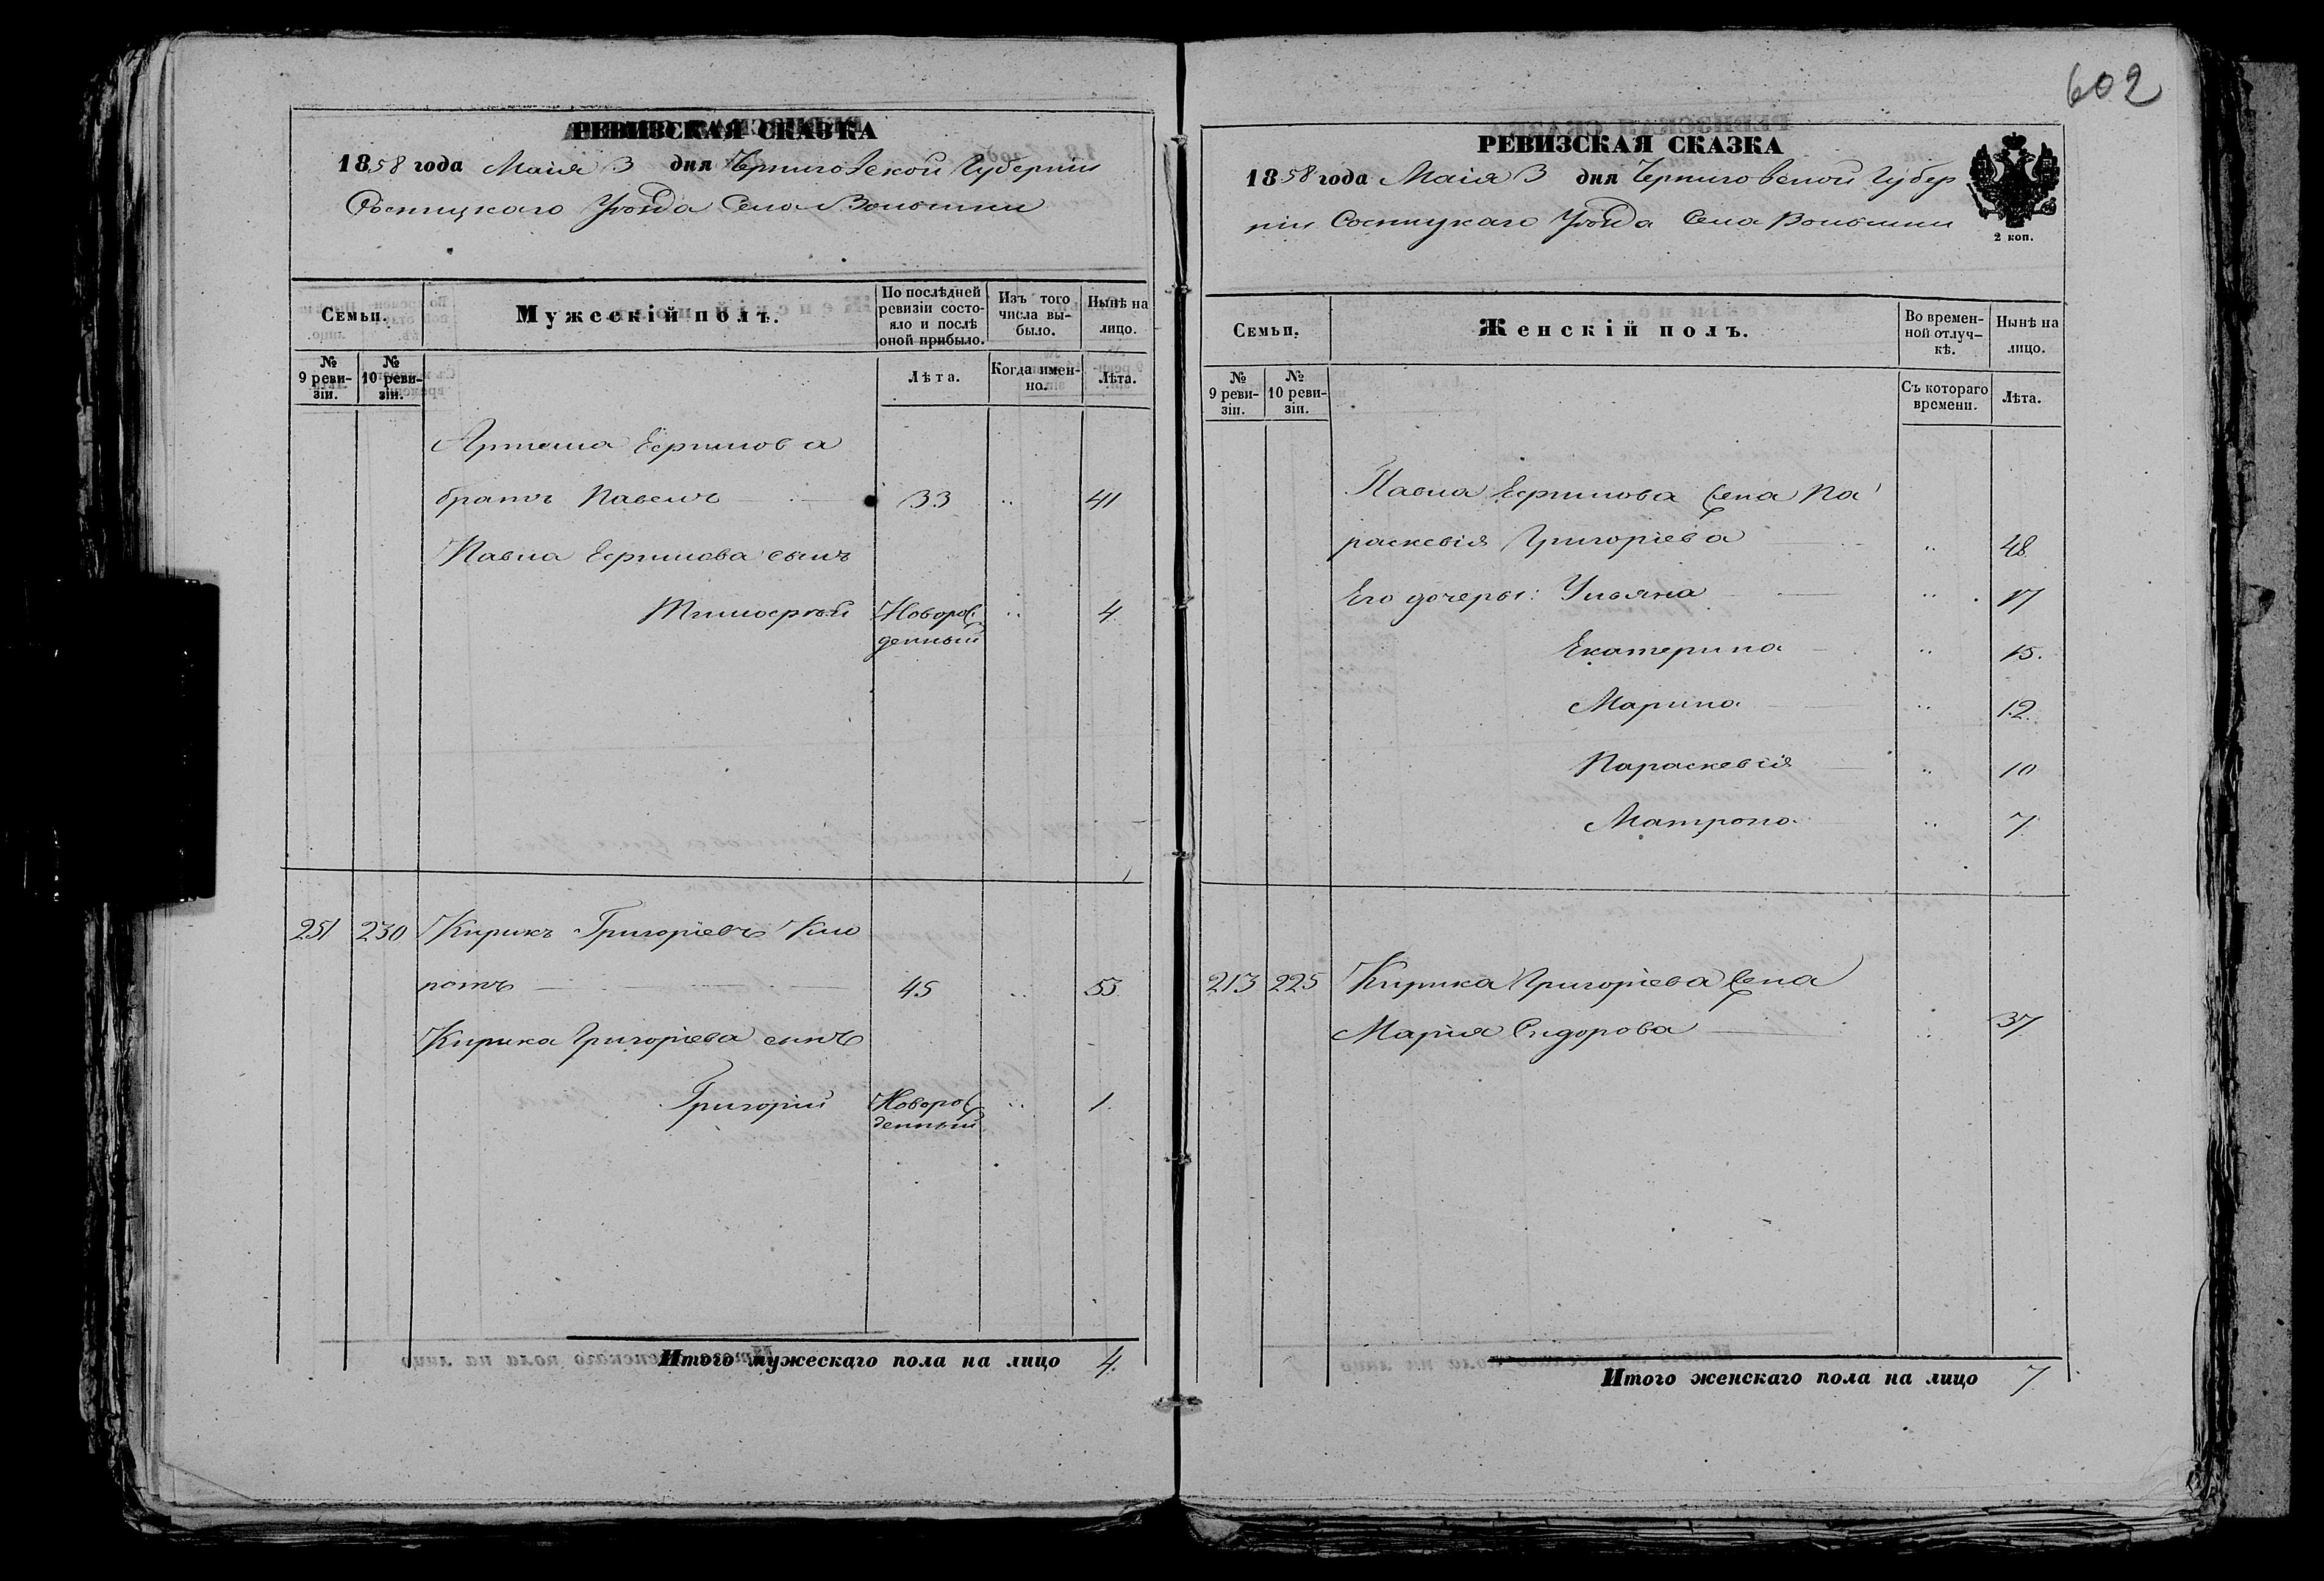 602
РЕВИЗСКАЯ СКАЗКА
1858 года Маія 3 дня Черниговской Губерніи
Сосницкаго Уѣзда Села Волынки
Семьи.
Мужескій полъ.
По послѣдней ревизіи состо-
яло и послѣ
оной прибыло.
Изъ того
числа вы-
было.
Нынѣ на
лицо.
№
9 реви-
зіи.
№
10 реви-
зіи.
Лѣта.
Когда имен-
но.
Лѣта.
Артема Ефимова
братъ Павелъ 33 .. 41
Павла Ефимова сынъ
Тимофѣй Новорож
денный .. 4
251 230 Кирикъ Григоріевъ
ротъ 45 .. 53
Кирика Григоріева сынъ
Григорій Новорож
денный .. 1.
Итого мужескаго пола на лицо 4.
РЕВИЗСКАЯ СКАЗКА
1858 года Маія 3 дня Черниговской Губер
ніи Сосницкаго Уѣзда Села Волынки
2 коп.
Семьи.
Женскій полъ.
Во времен-
ной отлуч-
кѣ.
Нынѣ на
лицо.
№
9 реви-
зіи.
№
10 реви-
зіи.
Съ котораго
времени.
Лѣта.
Павла Ефимова жена Па
раскевія Григоріева .. 48
Его дочеры: Ульяна .. 17
Екатерина .. 15.
Марина .. 12.
Параскевія .. 10
Матрона .. 7
213 225 Кирика Григоріева жена
Марія Сидорова .. 37
Итого женскаго пола на лицо 7